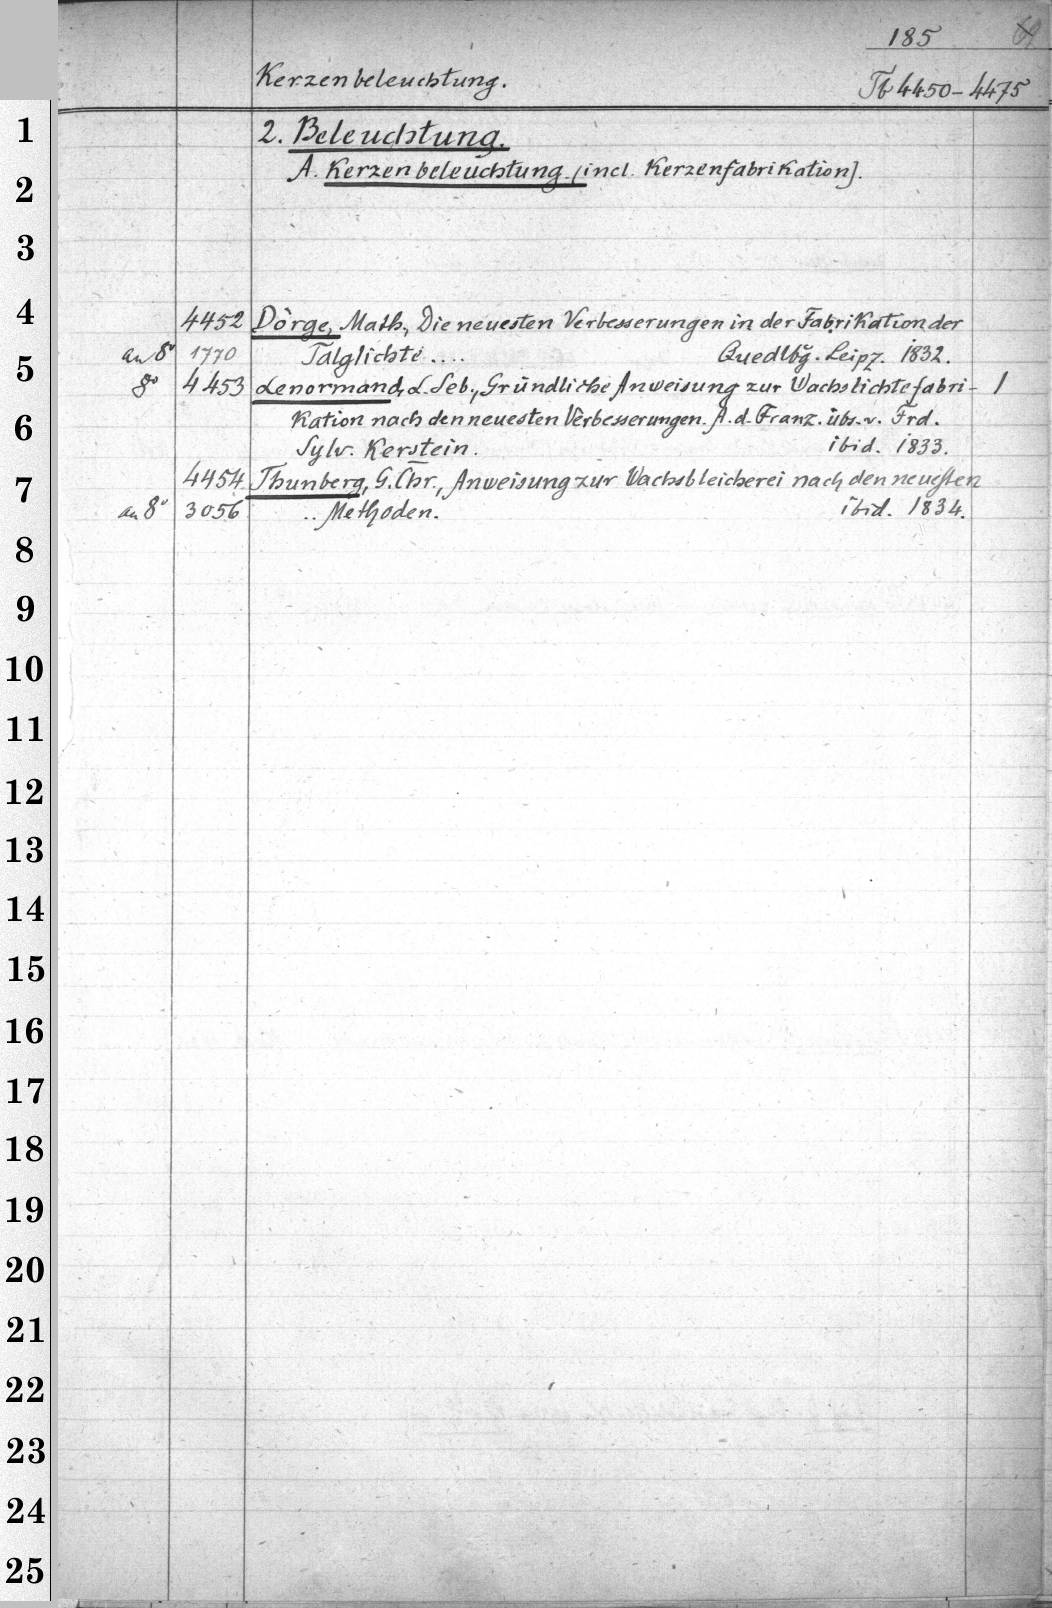 185
Kerzenbeleuchtung.
Tb 4450-4475
2. Beleuchtung.
A. Kerzenbeleuchtung. (incl. Kerzenfabrikation].
4452 Dörge, Math., Die neuesten Verbesserungen in der Fabrikation der
an 8° 1770 Talglichte.... Quedlbg. Leipz. 1832.
8° 4453 Lenormand, L. Seb., Gründliche Anweisung zur Wachslichtefabri- 1
kation nach den neuesten Verbesserungen. A. d. Franz. übs. v. Frd.
Sylv. Kerstein. ibid. 1833.
4454 Thunberg, G. Chr., Anweisung zur Wachsbleicherei nach den neuesten
an 8° 3056 .. Methoden. ibid. 1834.
1
2
3
4
5
6
7
8
9
10
11
12
13
14
15
16
17
18
19
20
21
22
23
24
25